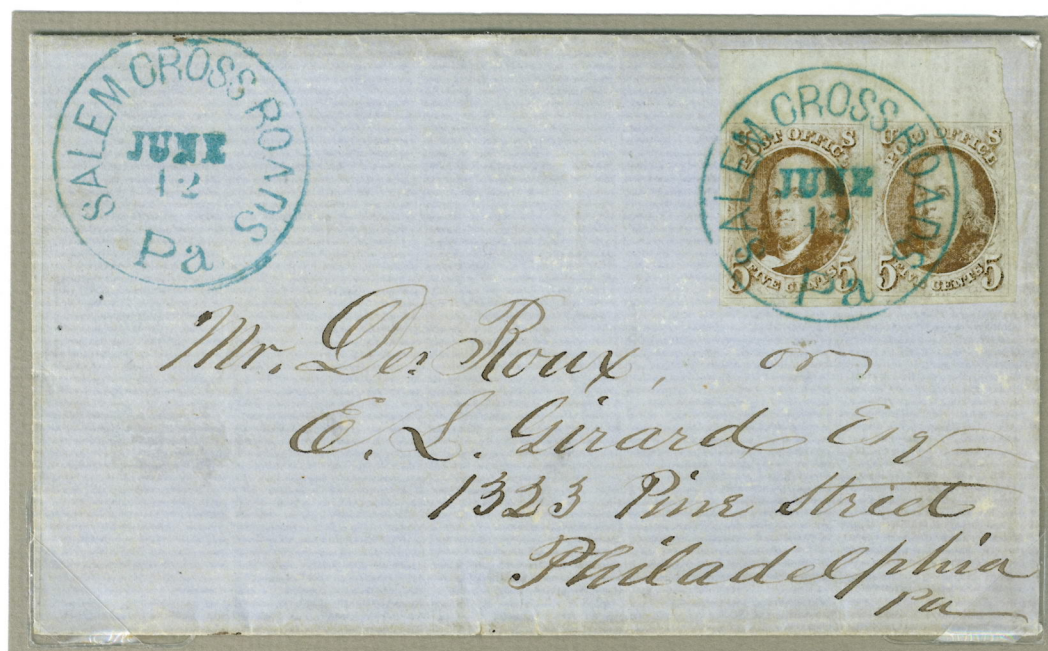 SALEM CROSS ROADS
JUNE
12
Pa
SALEM CROSS ROADS
JUNE
12
Pa
POST OFFICE
U S
POST OFFICE
5 FIVE CENTS 5
5 FIVE CENTS 5
Mr. De Roux, or
E. L. Girard Esq
1323 Pine Street
Philadelphia
Pa